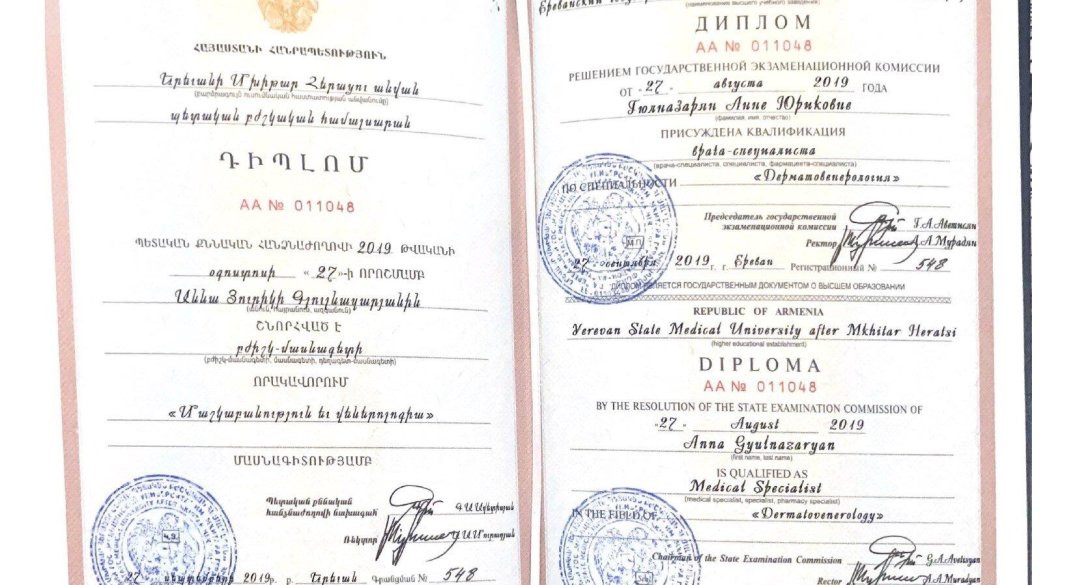 ՀԱՅԱՍՏԱՆԻ ՀԱՆՐԱՊԵՏՈՒԹՅՈՒՆ
Երևանի Մխիթար Հերացու անվան
(բարձրագույն ուսումնական հաստատության անվանումը)
պետական բժշկական համալսարան
ԴԻՊԼՈՄ
AA № 011048
ՊԵՏԱԿԱՆ ՔՆՆԱԿԱՆ ՀԱՆՁՆԱԺՈՂՈՎԻ 2019 ԹՎԱԿԱՆԻ
օգոստոսի «27»-Ի ՈՐՈՇՄԱՄԲ
Աննա Յուրիկի Գյուլնազարյանին
(անուն, հայրանուն, ազգանուն)
ՇՆՈՐՀՎԱԾ Է
բժիշկ-մասնագետի
(բժիշկ-մասնագետի, մասնագետի, դեղագետ-մասնագետի)
ՈՐԱԿԱՎՈՐՈՒՄ
«Մաշկաբանություն եւ վեներոլոգիա»
ՄԱՍՆԱԳԻՏՈՒԹՅԱՄԲ
Պետական քննական
հանձնաժողովի նախագահ Գ.Ա.Ավետիսյան
Ռեկտոր Ա.Ա.Մուրադյան
27 սեպտեմբեր 2019 թ. ք. Երևան Գրանցման № 548
Ереванский
(наименование высшего учебного заведения)
ДИПЛОМ
АА № 011048
РЕШЕНИЕМ ГОСУДАРСТВЕННОЙ ЭКЗАМЕНАЦИОННОЙ КОМИССИИ
ОТ "27" августа 2019 ГОДА
Гюлназарян Анне Юриковне
(фамилия, имя, отчество)
ПРИСУЖДЕНА КВАЛИФИКАЦИЯ
врача-специалиста
(врача-специалиста, специалиста, фармацевта-специалиста)
ПО СПЕЦИАЛЬНОСТИ «Дерматовенерология»
Председатель государственной
экзаменационной комиссии Г.А.Аветисян
Ректор А.А.Мурадян
27 сентября 2019 г. г. Ереван Регистрационный № 548
ДИПЛОМ ЯВЛЯЕТСЯ ГОСУДАРСТВЕННЫМ ДОКУМЕНТОМ О ВЫСШЕМ ОБРАЗОВАНИИ
REPUBLIC OF ARMENIA
Yerevan State Medical University after Mkhitar Heratsi
(higher educational establishment)
DIPLOMA
AA № 011048
BY THE RESOLUTION OF THE STATE EXAMINATION COMMISSION OF
"27" August 2019
Anna Gyulnazaryan
(first name, last name)
IS QUALIFIED AS
Medical Specialist
(medical specialist, specialist, pharmacy specialist)
IN THE FIELD OF «Dermatovenerology»
Chairman of the State Examination Commission G.A.Avetisyan
Rector A.A.Muradyan